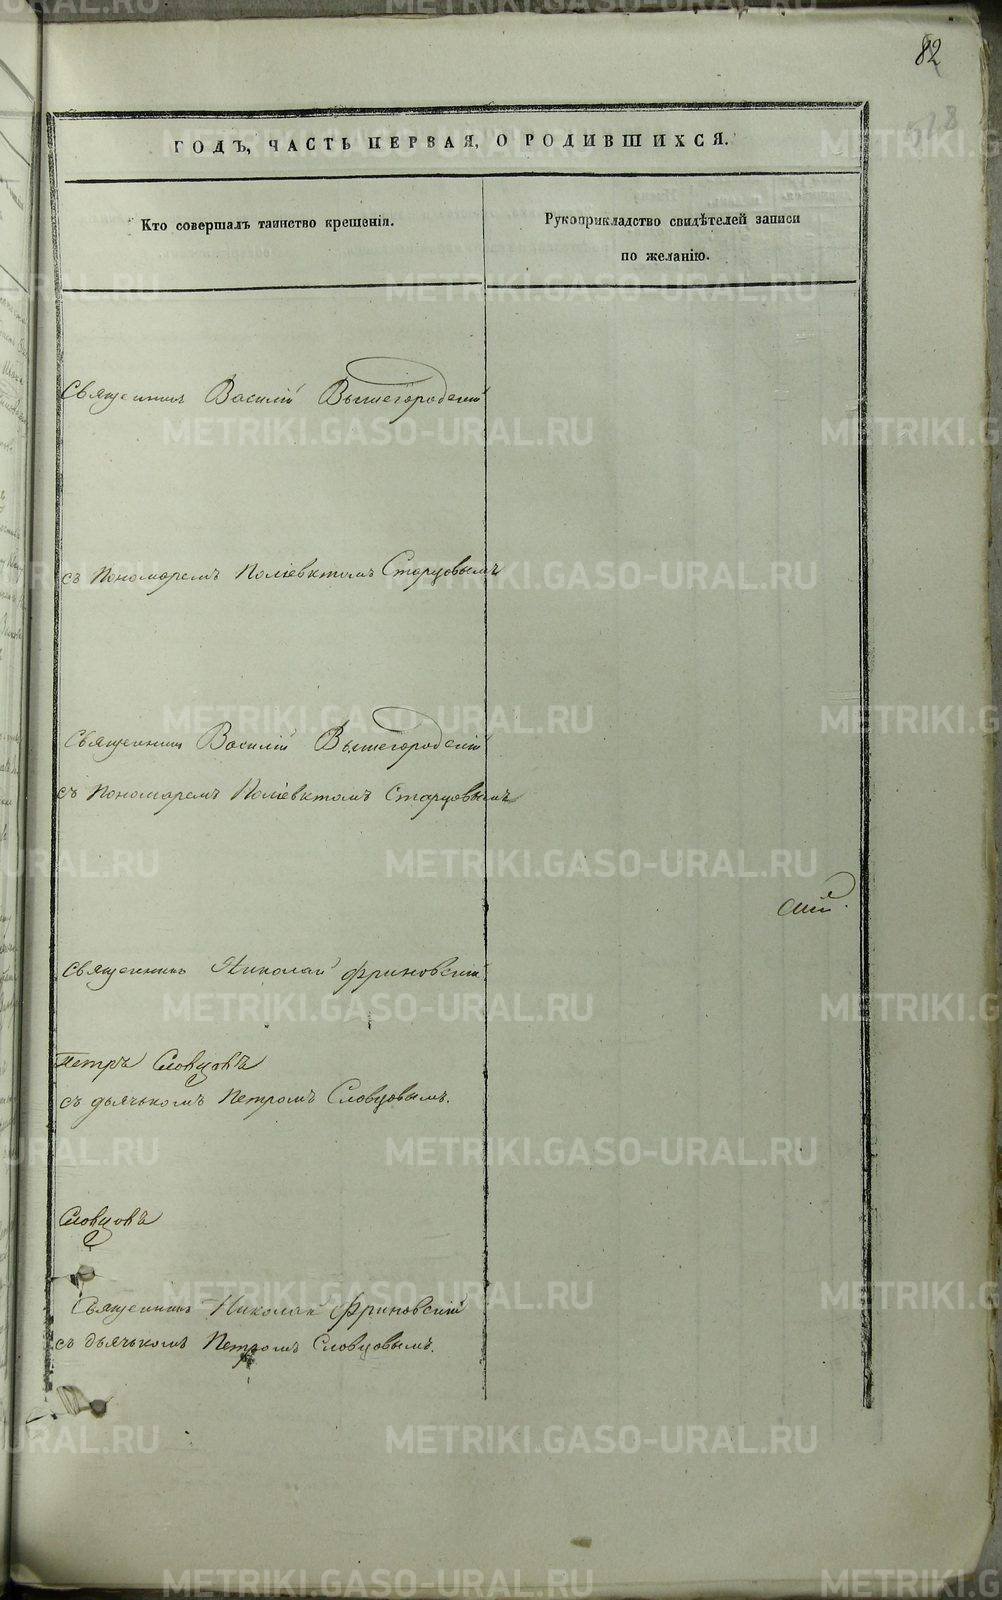 82
ГОДЪ, ЧАСТЬ ПЕРВАЯ, О РОДИВШИХСЯ.
Кто совершалъ таинство крещенія.
Рукоприкладство свидѣтелей записи
по желанію.
Священникъ Василій Вышегородскій
съ Пономаремъ Поліевктомъ Старцовымъ
Священникъ Василій Вышегородскій
съ Пономаремъ Поліевктомъ Старцовымъ
Священникъ Николай Фриновскій
Петръ Словцовъ
съ дьячькомъ Петромъ Словцовымъ.
Словцовъ
Священникъ Николай Фриновскій
съ дьячькомъ Петромъ Словцовымъ.
METRIKI.GASO-URAL.RU